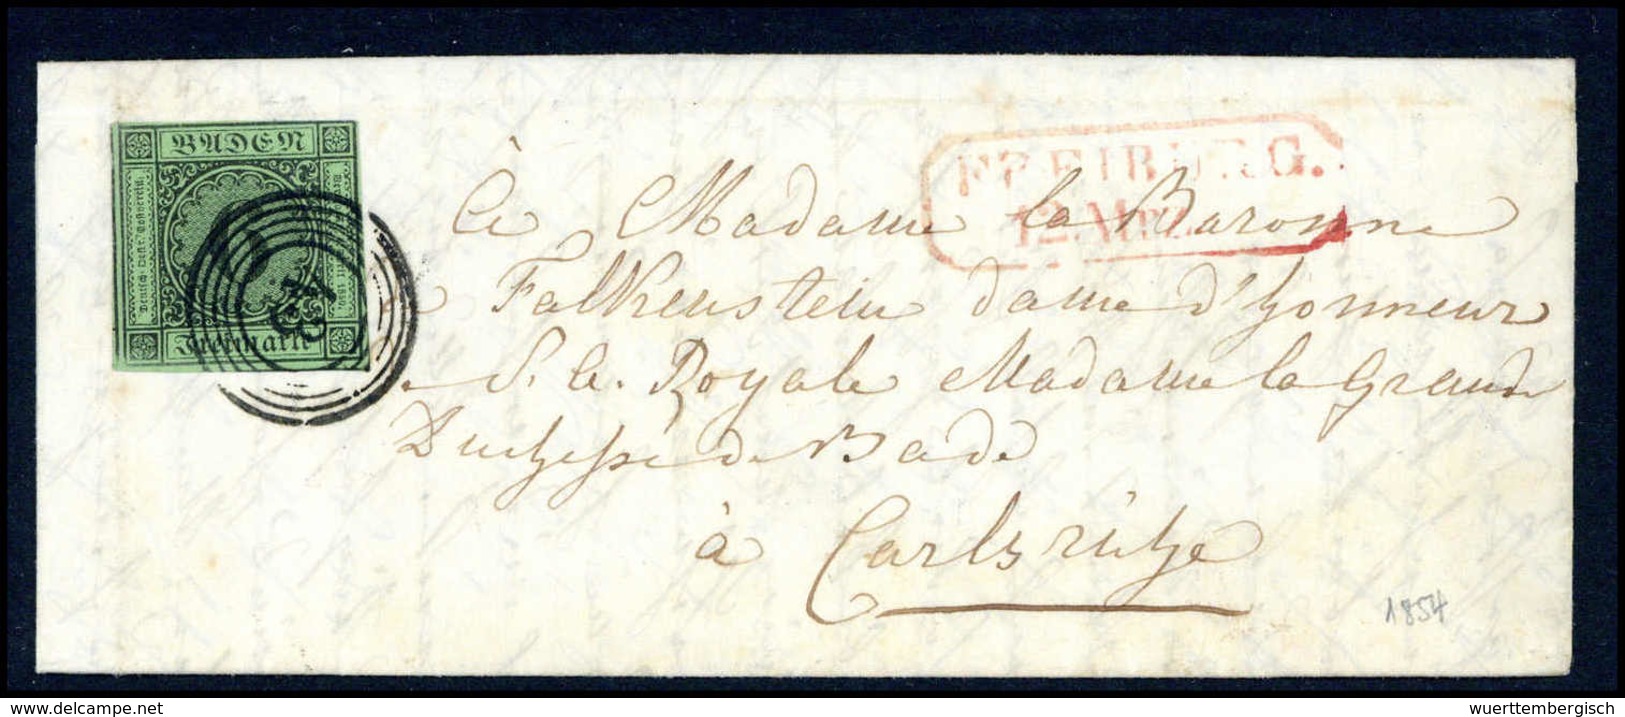 BADEN
Freimarke
43
FREIBURG.
12. Mrz.
à Madame la Baronne
Falkenstein dame d'honneur
S. a. Royale Madame la Grande
Duchesse de Bade
à Carlsruhe
1854
www.delcampe.net
wuerttembergisch